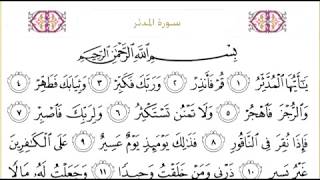 سورة المدثر
بِسْمِ ٱللَّهِ ٱلرَّحْمَٰنِ ٱلرَّحِيمِ
يَٰٓأَيُّهَا ٱلْمُدَّثِّرُ ١ قُمْ فَأَنذِرْ ٢ وَرَبَّكَ فَكَبِّرْ ٣ وَثِيَابَكَ فَطَهِّرْ ٤
وَٱلرُّجْزَ فَٱهْجُرْ ٥ وَلَا تَمْنُن تَسْتَكْثِرُ ٦ وَلِرَبِّكَ فَٱصْبِرْ ٧
فَإِذَا نُقِرَ فِى ٱلنَّاقُورِ ٨ فَذَٰلِكَ يَوْمَئِذٍ يَوْمٌ عَسِيرٌ ٩ عَلَى ٱلْكَٰفِرِينَ
غَيْرُ يَسِيرٍ ١٠ ذَرْنِى وَمَنْ خَلَقْتُ وَحِيدًا ١١ وَجَعَلْتُ لَهُۥ مَالًا